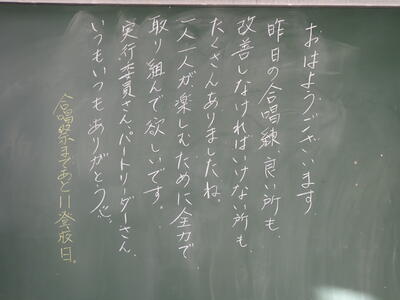 おはようございます。
昨日の合唱練、良い所も、
改善しなければいけない所も、
たくさんありましたね。
一人一人が、楽しむために全力で
取り組んで欲しいです。
実行委員さん、パートリーダーさん、
いつもいつもありがとう。
合唱祭まであと11登校日。